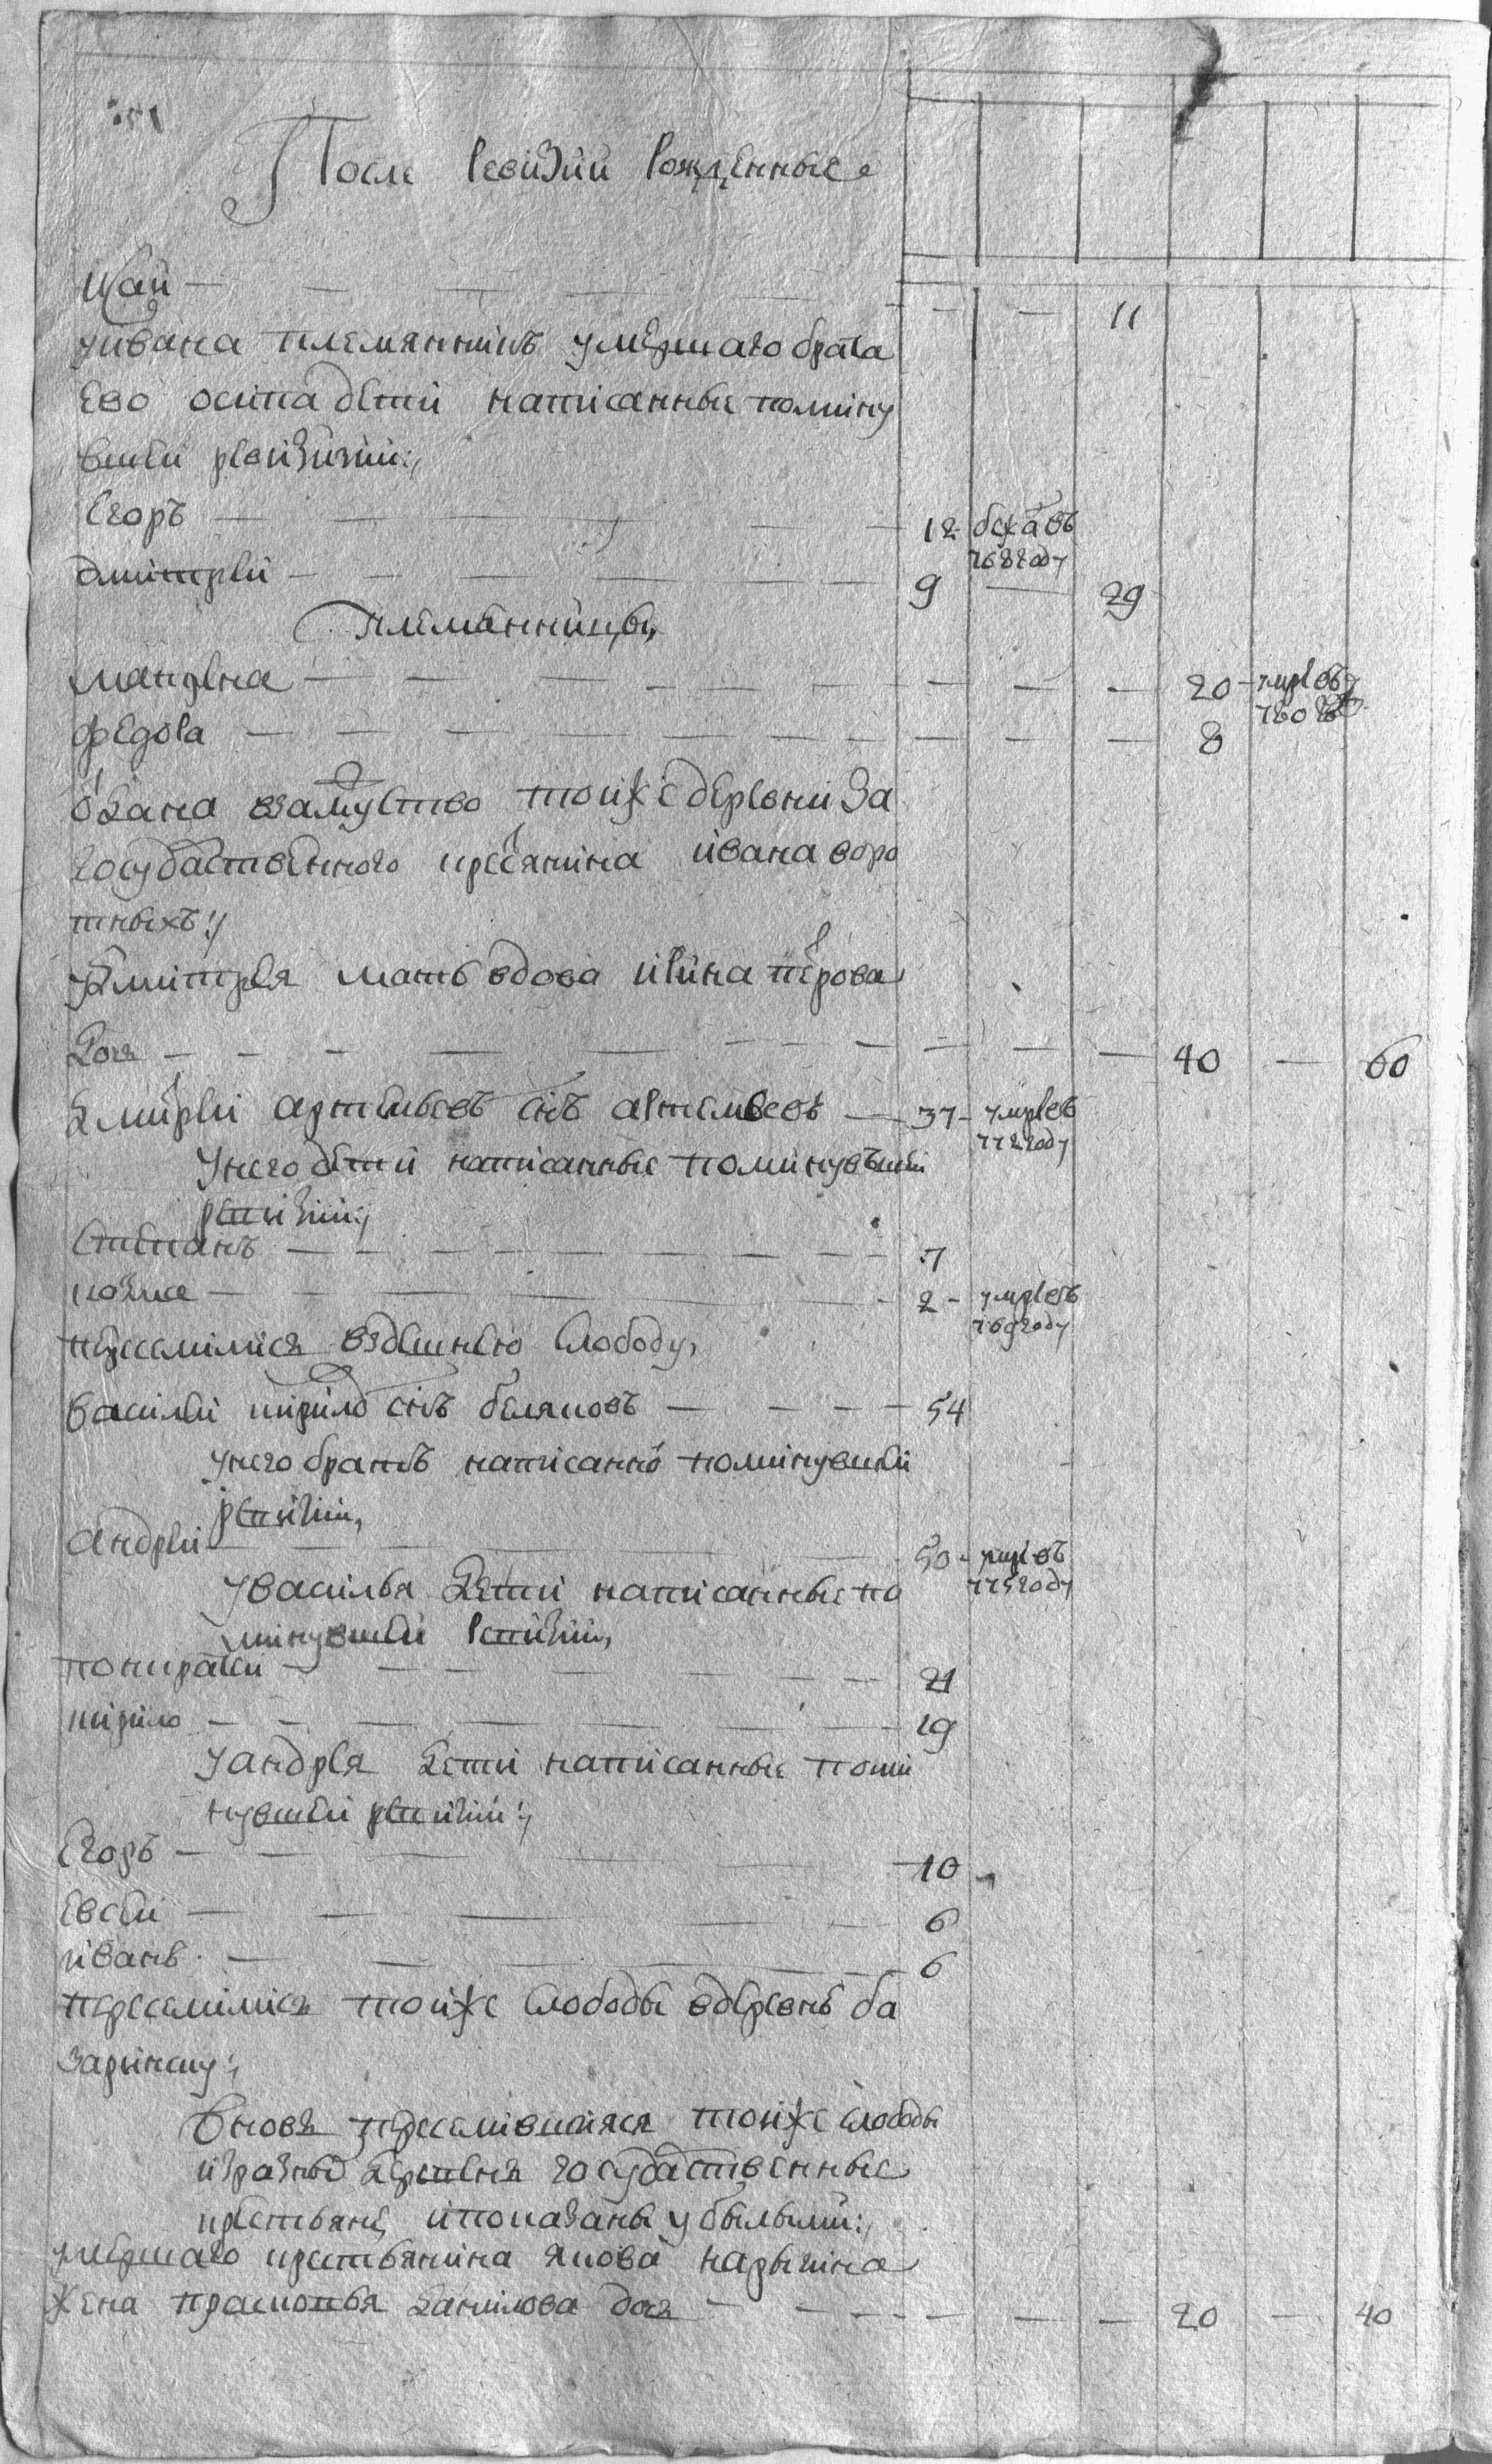 После ревизии рожденные
Исай — — — — — — — 11
у ивана племянники умершаго брата
Ево осипа дети написанные помину
вшеи ревизиии:,
Егоръ — — — — 12 бежавъ
768 году
дмитреи — — — — — 9 — 29
племянницы,
матрена — — — — — — — — — 20 — умре въ
760
федора — — — — — — — — — — 8
оная взамужство тоиже деревни за
государственного кресянина ивана воро
тныхъ:,
у дмитрея мать вдова ирина петрова
дочь — — — — — — — — — — 40 — 60
дмитреи артемьевъ снъ артемьевъ — 37 — умре въ
772 году
у него дети написанные поминувшеи
ревизии:,
степанъ — — — — — — — 7
козма — — — — — 2 — умре въ
769 году
переселилися вздешнею слободу,
василеи кирилов снъ беляковъ — — — — 54
у него братъ написанной поминувшеи
ревизии,
андреи — — — — 50 — умре въ
775 году
у василья дети написанные по
минувшеи ревизии,
понкратеи — — — — — — 21
кирило — — — — — — — 19
у андрея дети написанные поми
нувшеи ревизии:,
Егоръ — — — — — 10
Евсеи — — — — — 6
иванъ — — — — — 6
переселилися тоиже слободы вдеревню ба
зарынску:,
вновь переселившияся тоиже слободы
изразных деревень государственные
крестьяне, ипоказаны убылыми:,
умершаго крестьянина якова карыгина
жена прасковья данилова дочь — — — — — — 20 — 40